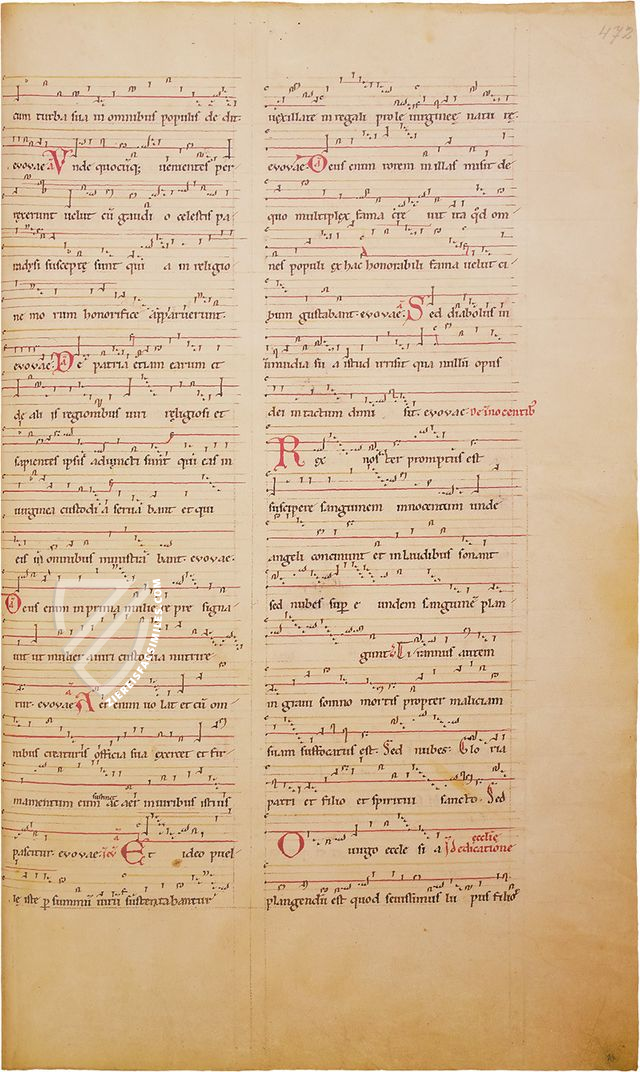 472
cum turba sua in omnibus populis de dit.
evovae. Unde quocūq; uenientes per
rexerunt uelut cū gaudi o celestis pa
radysi suscepte sunt qui a in religio
ne mo rum honorifice apparuerunt.
evovae. De patria etiam earum et
de ali is regionibus uiri religiosi et
sapientes ipsis adiuncti sunt qui eas in
uirginea custodi a serua bant et qui
eis in omnibus ministra bant. evovae.
Deus enim in prima muliere pre signa
uit ut mulier a uiri custodia nutrire
tur. evovae. Aer enim uo lat et cū om
nibus creaturis officia sua exercet et fir
mamentum eum sustinet ac aer in uiribus istius
pascitur. evovae. Et ideo puel
le iste p summū uirū sustentabantur
uexillate in regali prole uirginee natu re.
evovae. Deus enim rorem in illas misit de
quo multiplex fama cre uit ita qd om
nes populi ex hac honorabili fama uelut ci
bum gustabant. evovae. Sed diabolus in
inuidia su a istud irrisit qua nullū opus
dei intactum dimi sit. evovae De innocentib
Rex noster promptus est
suscipere sanguinem innocentum unde
angeli concinunt et in laudibus sonant
sed nubes sup e undem sanguinē plan
gunt. Tirannus autem
in graui somno mortis propter maliciam
suam suffocatus est. Sed nubes. Glo ria
patri et filio et spiritui sancto. Sed
O uirgo eccle si a In Dedicatione ecclie
plangendū est quod seuissimus lu pus filios
ZIEREISFACSIMILES.COM